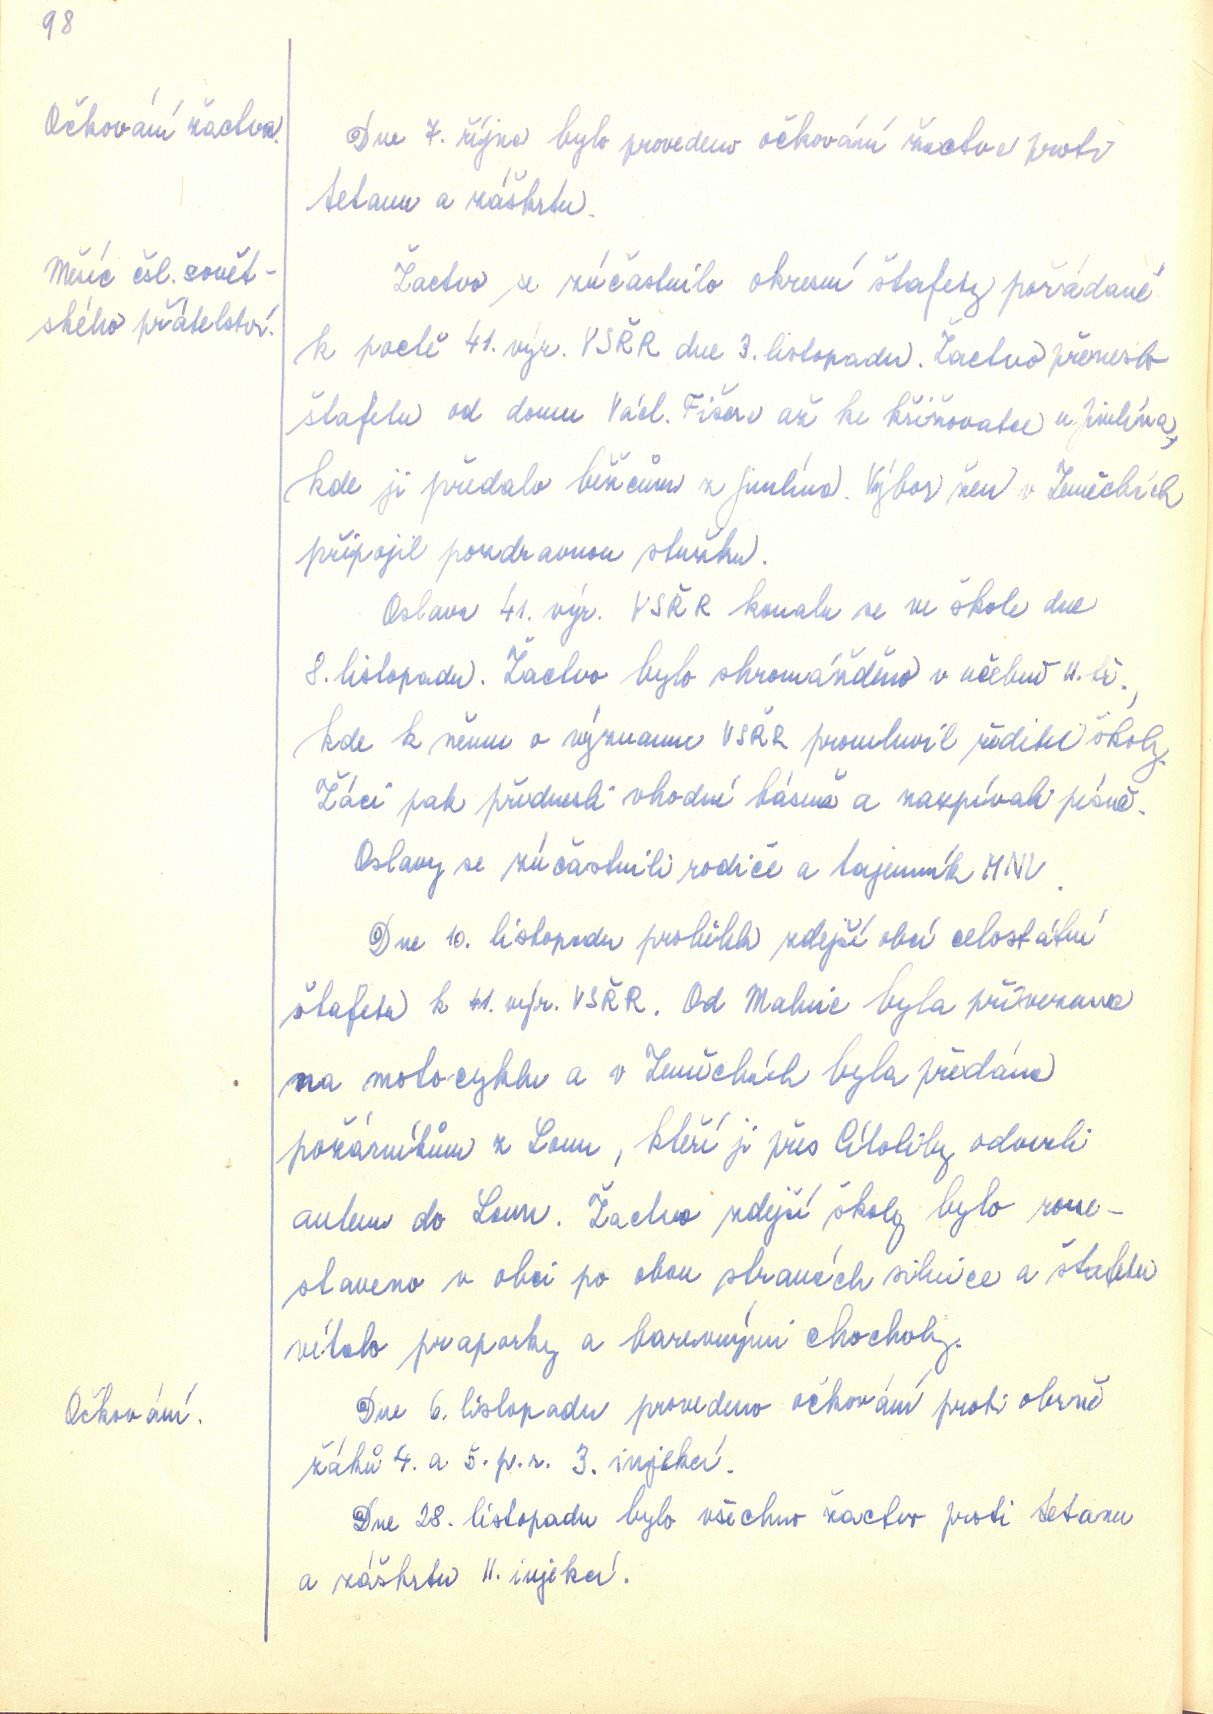 98
Očkování žactva.
Dne 7. října bylo provedeno očkování žactva proti
tetanu a záškrtu.
Měsíc čsl. sovět-
ského přátelství.
Žactvo se zúčastnilo okresní štafety pořádané
k poctě 41. výr. VSŘR dne 3. listopadu. Žactvo přeneslo
štafetu od domu Václ. Fišera až ke křižovatce u Jimlína,
kde ji předalo běžcům z Jimlína. Výbor žen v Zeměchách
připojil pozdravnou stužku.
Oslava 41. výr. VSŘR konala se ve škole dne
8. listopadu. Žactvo bylo shromážděno v učebně II. tř.,
kde k němu o významu VSŘR promluvil ředitel školy.
Žáci pak přednesli vhodné básně a zazpívali písně.
Oslavy se zúčastnili rodiče a tajemník MNV.
Dne 10. listopadu proběhla zdejší obcí celostátní
štafeta k 41. výr. VSŘR. Od Malnic byla přivezena
na motocyklu a v Zeměchách byla předána
požárníkům z Loun, kteří ji přes Cítoliby odvezli
autem do Loun. Žactvo zdejší školy bylo roze-
staveno v obci po obou stranách silnice a štafetu
vítalo praporky a barevnými chocholy.
Očkování.
Dne 6. listopadu provedeno očkování proti obrně
žáků 4. a 5. p. r. 3. injekcí.
Dne 28. listopadu bylo všechno žactvo proti tetanu
a záškrtu II. injekcí.